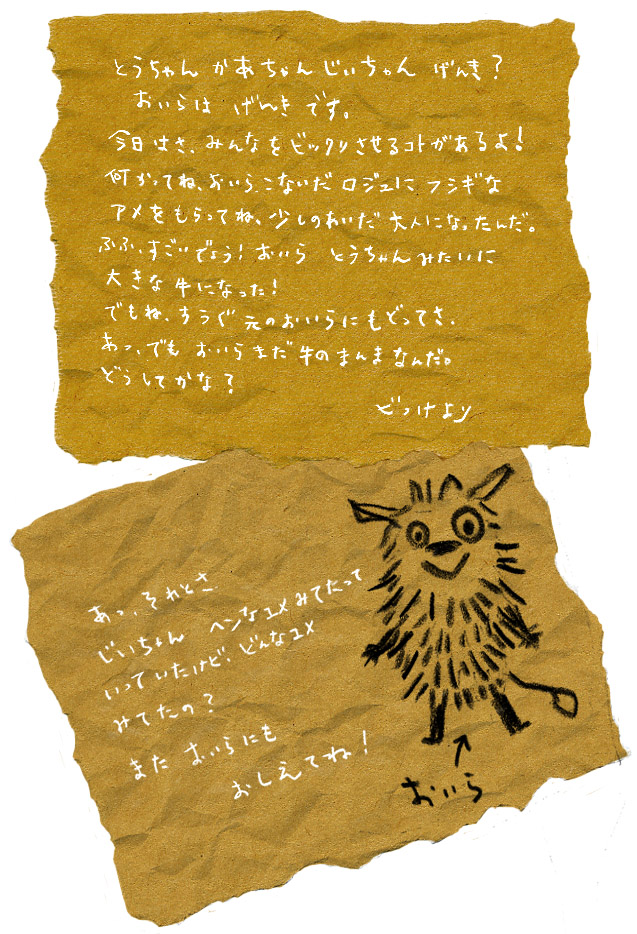 とうちゃん かあちゃん じいちゃん げんき？
おいらは げんき です。
今日はさ、みんなをビックリさせるコトがあるよ！
何かってね、おいら、こないだ ロジュに フシギな
アメをもらってね、少しのあいだ 大人になったんだ。
ふふ、すごいでしょう！ おいら とうちゃんみたいに
大きな牛になった！
でもね、すうぐ 元のおいらにもどってさ、
あっ、でも おいらまだ牛のまんまなんだ。
どうしてかな？
どっけより
あっ、それとさ
じいちゃん ヘンなユメみてたって
いっていたけど、どんなユメ
みてたの？
また おいらにも
おしえてね！
おいら